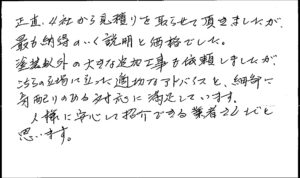 正直、4社から見積りを取らせて頂きましたが、
最も納得のいく説明と価格でした。
塗装以外の大きな追加工事も依頼しましたが、
こちらの立場に立った適切なアドバイスと、細部に
気配りのある対応に満足しています。
人様に安心して紹介できる業者さんだと
思います。